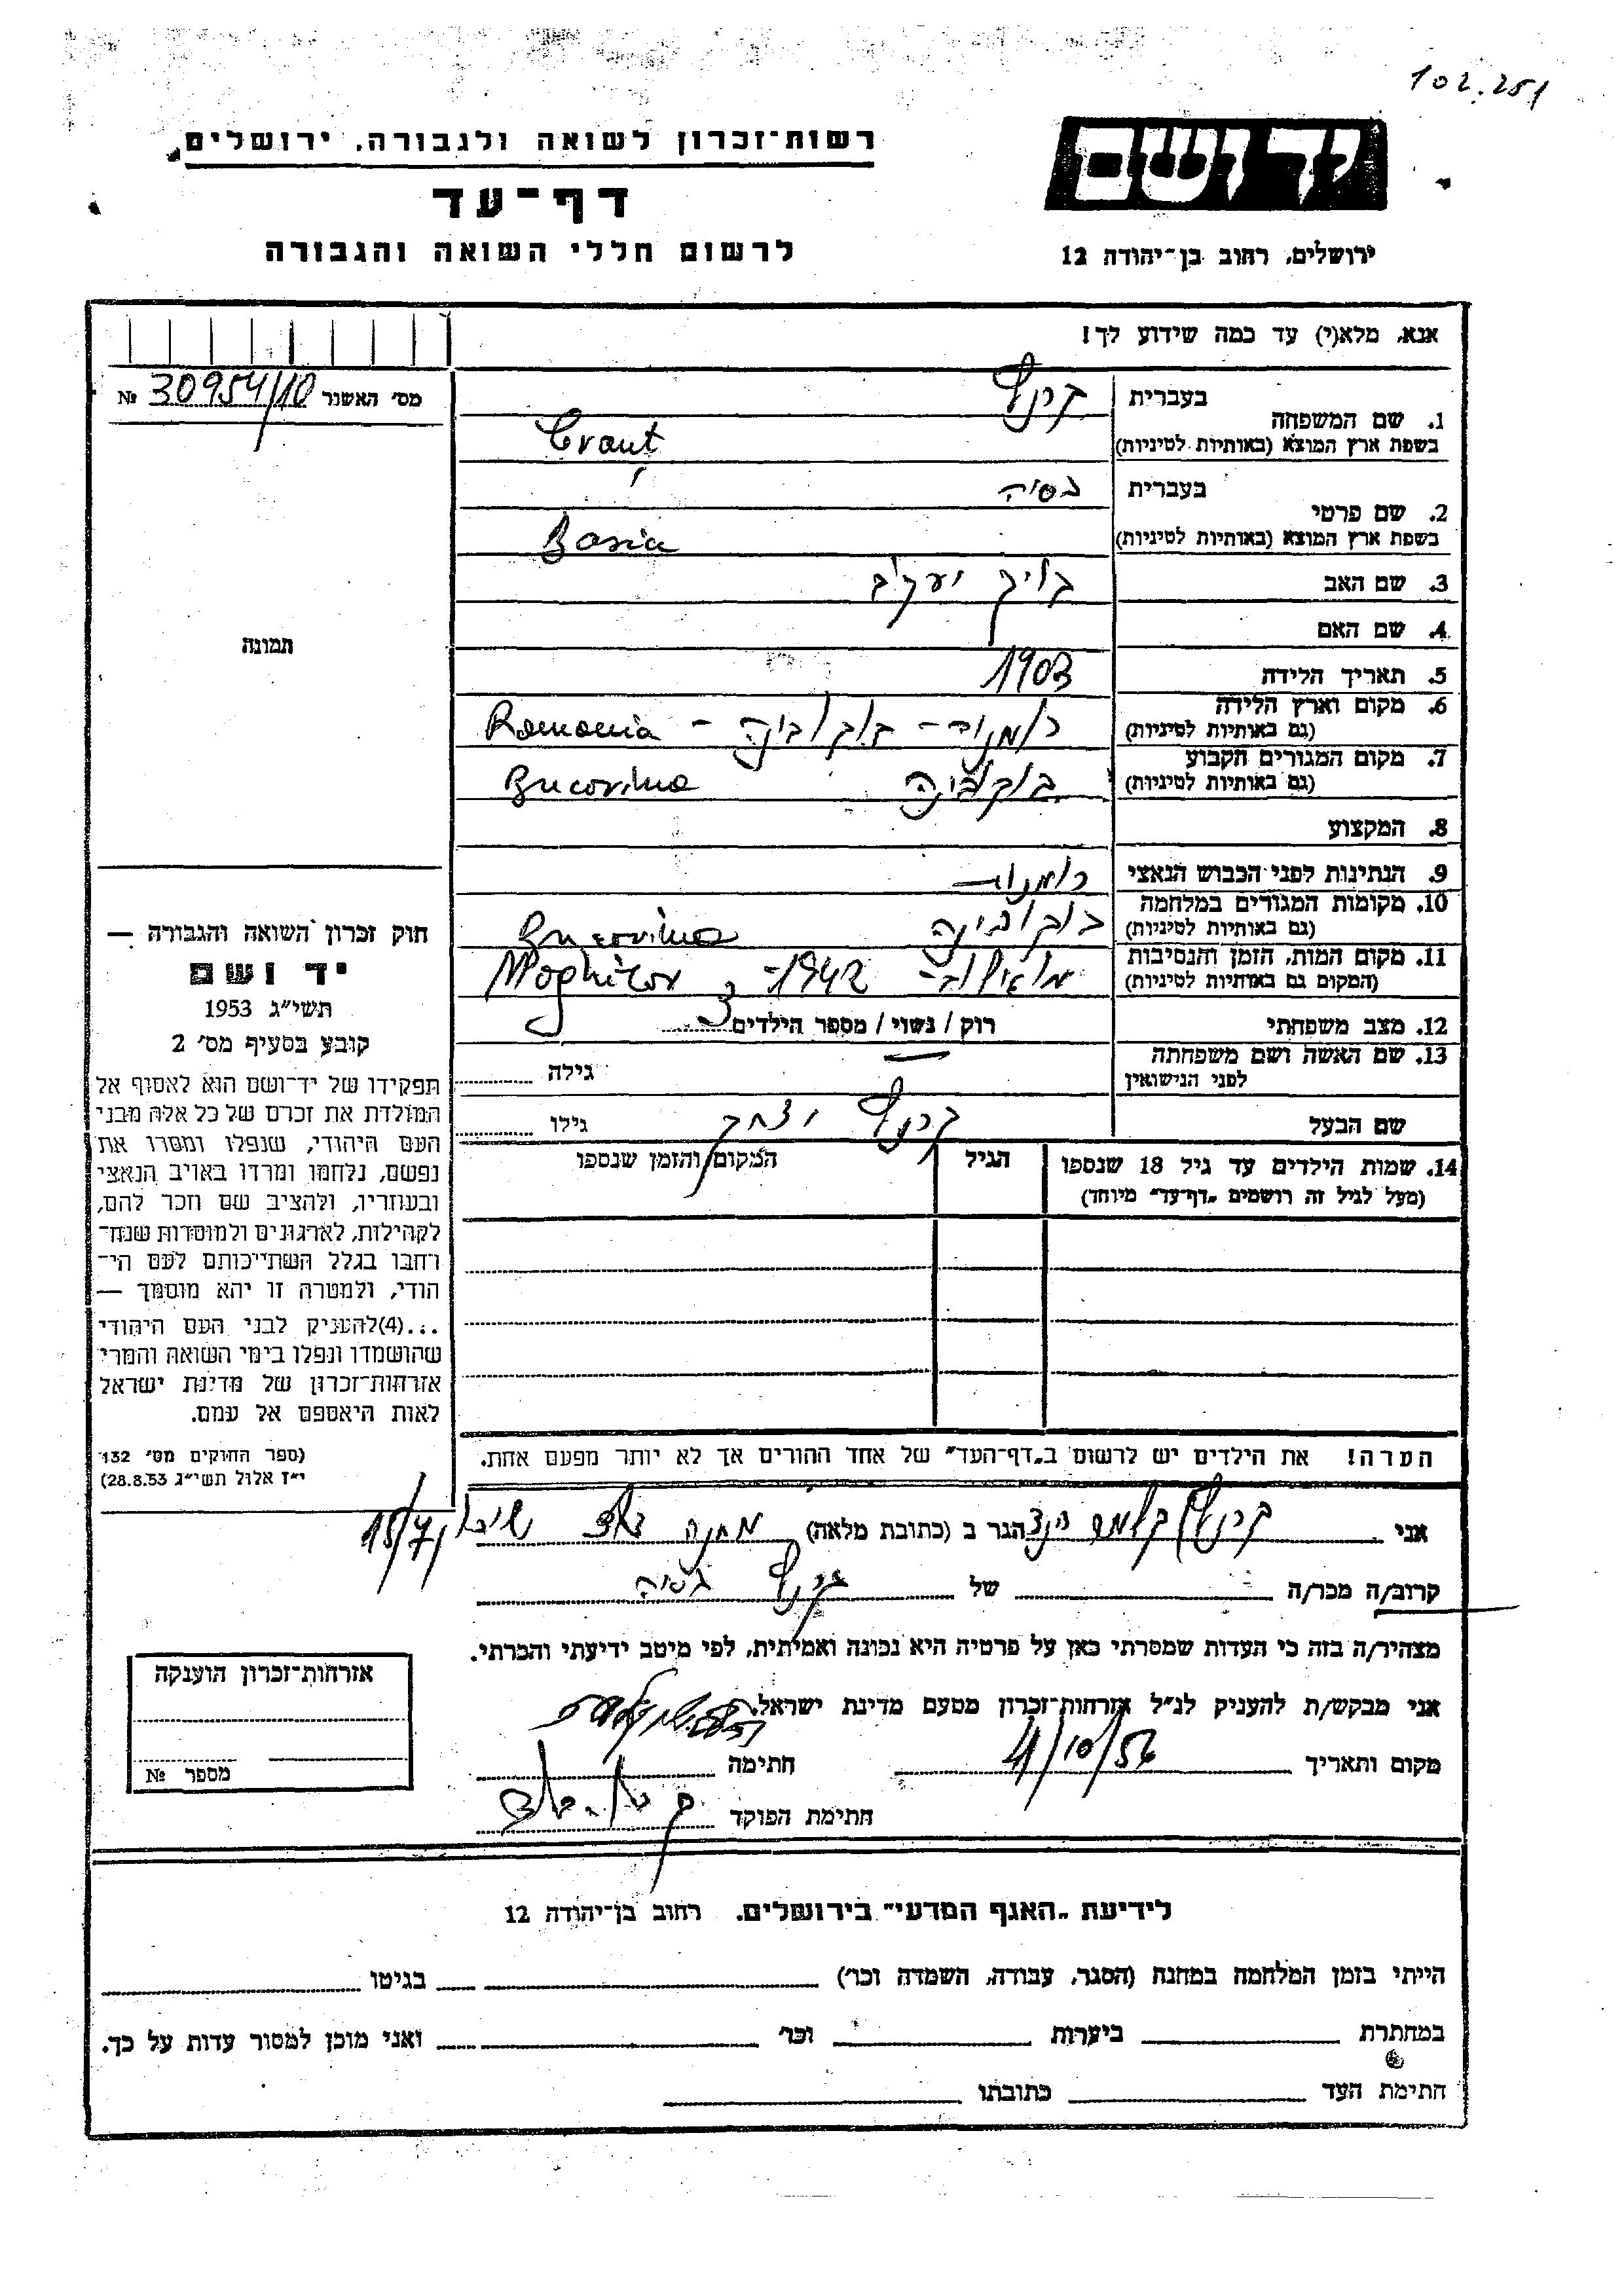 102.251
יד ושם
ירושלים, רחוב בן־יהודה 12
רשות־זכרון לשואה ולגבורה, ירושלים
דף־עד
לרשום חללי השואה והגבורה
אנא, מלא(י) עד כמה שידוע לך!
מס׳ האשנר 30954/10 №
תמונה
1. שם המשפחה
בעברית קרנץ
בשפת ארץ המוצא (באותיות לטיניות) Cranţ
2. שם פרטי
בעברית בסיה
בשפת ארץ המוצא (באותיות לטיניות) Basia
3. שם האב יעקב
4. שם האם
5. תאריך הלידה 1903
6. מקום וארץ הלידה
(גם באותיות לטיניות) רומניה - בוקובינה - Romania
7. מקום המגורים הקבוע
(גם באותיות לטיניות) בוקובינה Bucovina
8. המקצוע
9. הנתינות לפני הכבוש הנאצי רומנית
10. מקומות המגורים במלחמה
(גם באותיות לטיניות) בוקובינה Bucovina
11. מקום המות, הזמן והנסיבות
(המקום גם באותיות לטיניות) 1942 - Moghilov
12. מצב משפחתי רוק / נשוי / מספר הילדים 3
13. שם האשה ושם משפחתה
לפני הנישואין גילה
שם הבעל קרנץ יצחק גילו
14. שמות הילדים עד גיל 18 שנספו
(מעל לגיל זה רושמים „דף־עד״ מיוחד)
הגיל
המקום והזמן שנספו
הערה! את הילדים יש לרשום ב„דף־העד״ של אחד ההורים אך לא יותר מפעם אחת.
חוק זכרון השואה והגבורה —
יד ושם
תשי״ג 1953
קובע בסעיף מס׳ 2
תפקידו של יד־ושם הוא לאסוף אל
המולדת את זכרם של כל אלה מבני
העם היהודי, שנפלו ומסרו את
נפשם, נלחמו ומרדו באויב הנאצי
ובעוזריו, ולהציב שם וזכר להם,
לקהילות, לארגונים ולמוסדות שנח־
רחבו בגלל השתייכותם לעם הי־
הודי, ולמטרה זו יהא מוסמך —
...(4)להעניק לבני העם היהודי
שהושמדו ונפלו בימי השואה והמרי
אזרחות־זכרון של מדינת ישראל
לאות היאספם אל עמם.
(ספר החוקים מס׳ 132
י״ז אלול תשי״ג 28.8.53)
אני קרנץ הגר ב (כתובת מלאה) מחנה 15/7
קרוב/ה מכר/ה של קרנץ בסיה
מצהיר/ה בזה כי העדות שמסרתי כאן על פרטיה היא נכונה ואמיתית, לפי מיטב ידיעתי והכרתי.
אני מבקש/ת להעניק לנ״ל אזרחות־זכרון מטעם מדינת ישראל.
מקום ותאריך 4/10/56 חתימה
חתימת הפוקד
אזרחות־זכרון הוענקה
מספר №
לידיעת „האגף המדעי״ בירושלים. רחוב בן־יהודה 12
הייתי בזמן המלחמה במחנה (הסגר, עבודה, השמדה וכר׳) בגיטו
במחתרת ביערות וכר׳ ואני מוכן למסור עדות על כך.
חתימת העד כתובתו